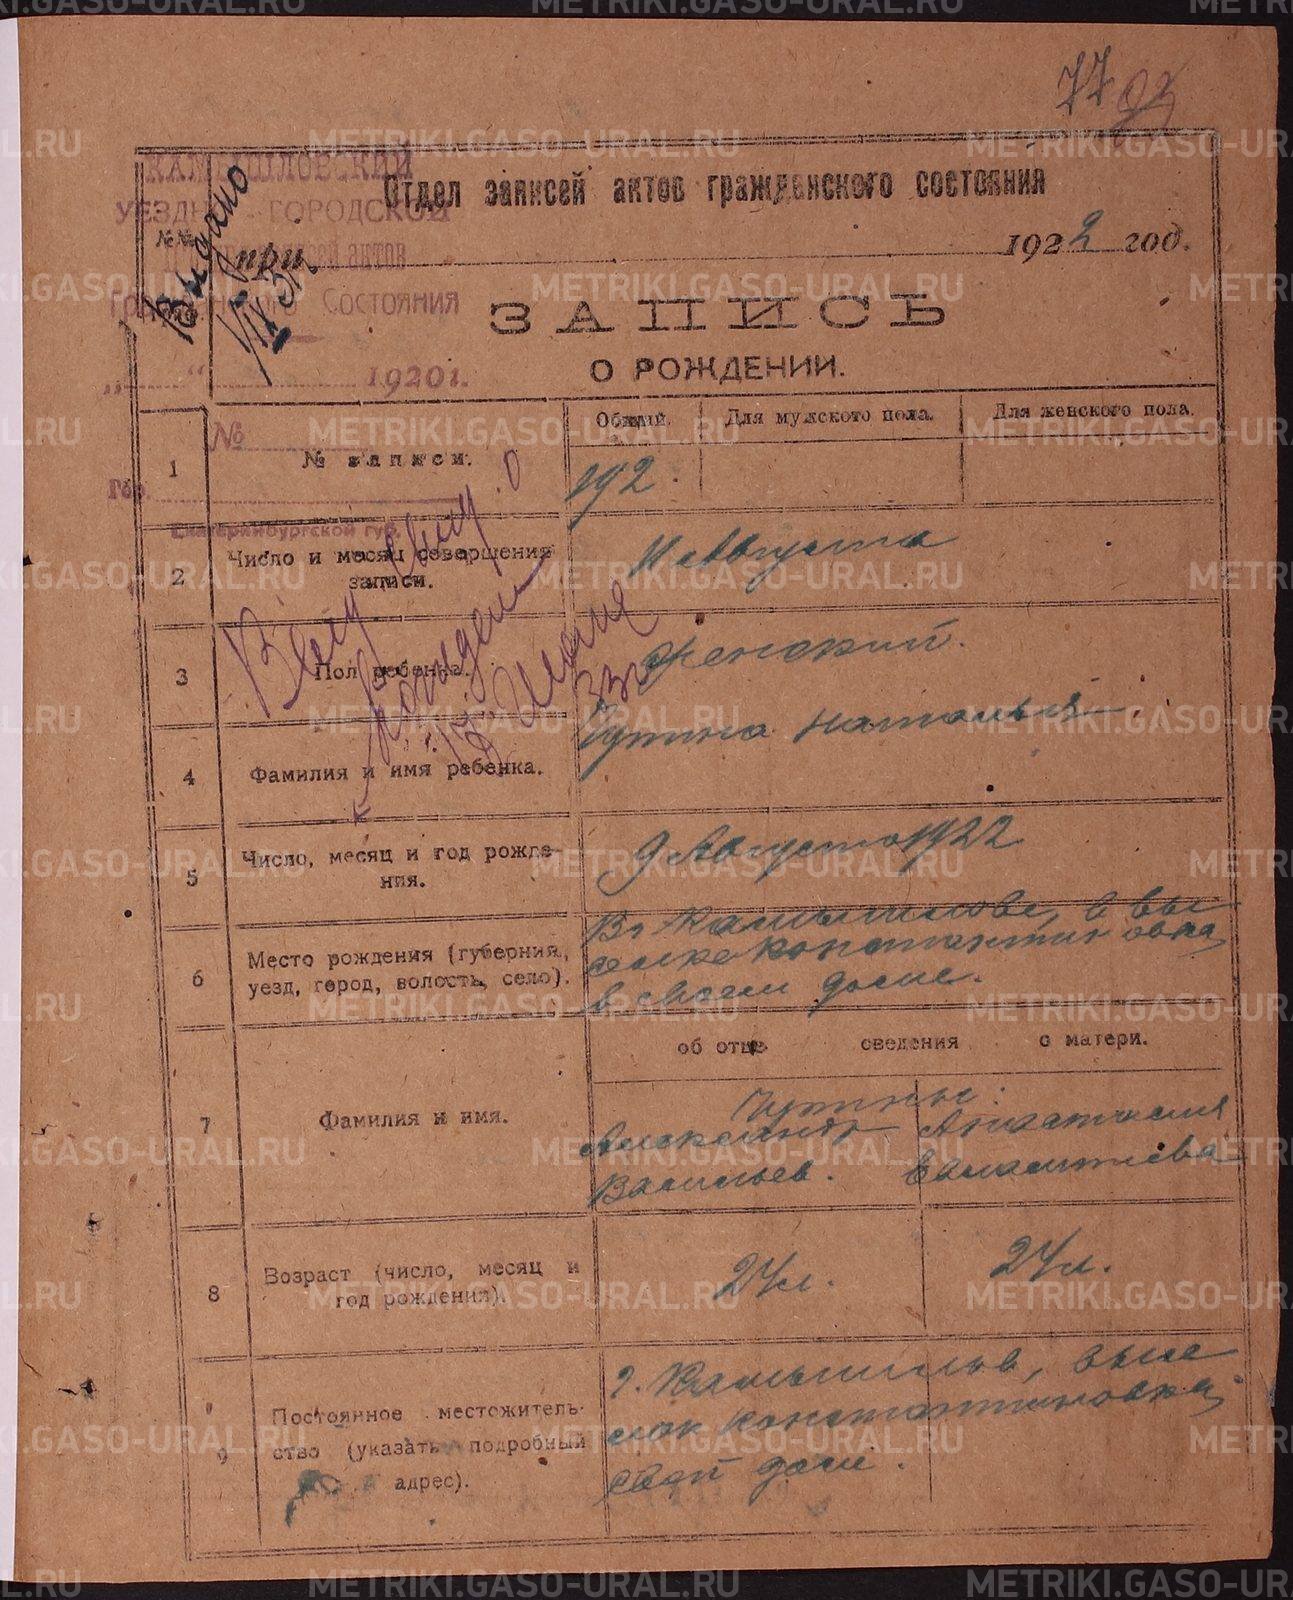 77
КАМЫШЛОВСКИЙ
УЕЗДНО-ГОРОДСКОЙ
записей актов
Гражданского Состояния
„ “ 1920 г.
№
Гор.
Екатеринбургской губ.
Выдано
Отдел записей актов гражданского состояния
№№
при 1922 год.
ЗАПИСЬ
О РОЖДЕНИИ.
Общий. Для мужского пола. Для женского пола.
1 № записи. 192.
2 Число и месяц совершения записи. 11 Августа
3 Пол ребенка. Женский.
4 Фамилия и имя ребенка. Наталья.
5 Число, месяц и год рождения. 9 Августа 1922
6 Место рождения (губерния, уезд, город, волость, село).
В г Камышлове, в вы-
селке Константиновка,
в своем доме.
об отце сведения о матери.
7 Фамилия и имя.
Александр Анастасия
Васильев.
8 Возраст (число, месяц и год рождения). 24 л. 24 л.
9 Постоянное местожительство (указать подробный адрес).
г. Камышлов, высе
лок Константиновка,
свой дом.
Выд. свид. о
рожден
Июне
33 г
METRIKI.GASO-URAL.RU